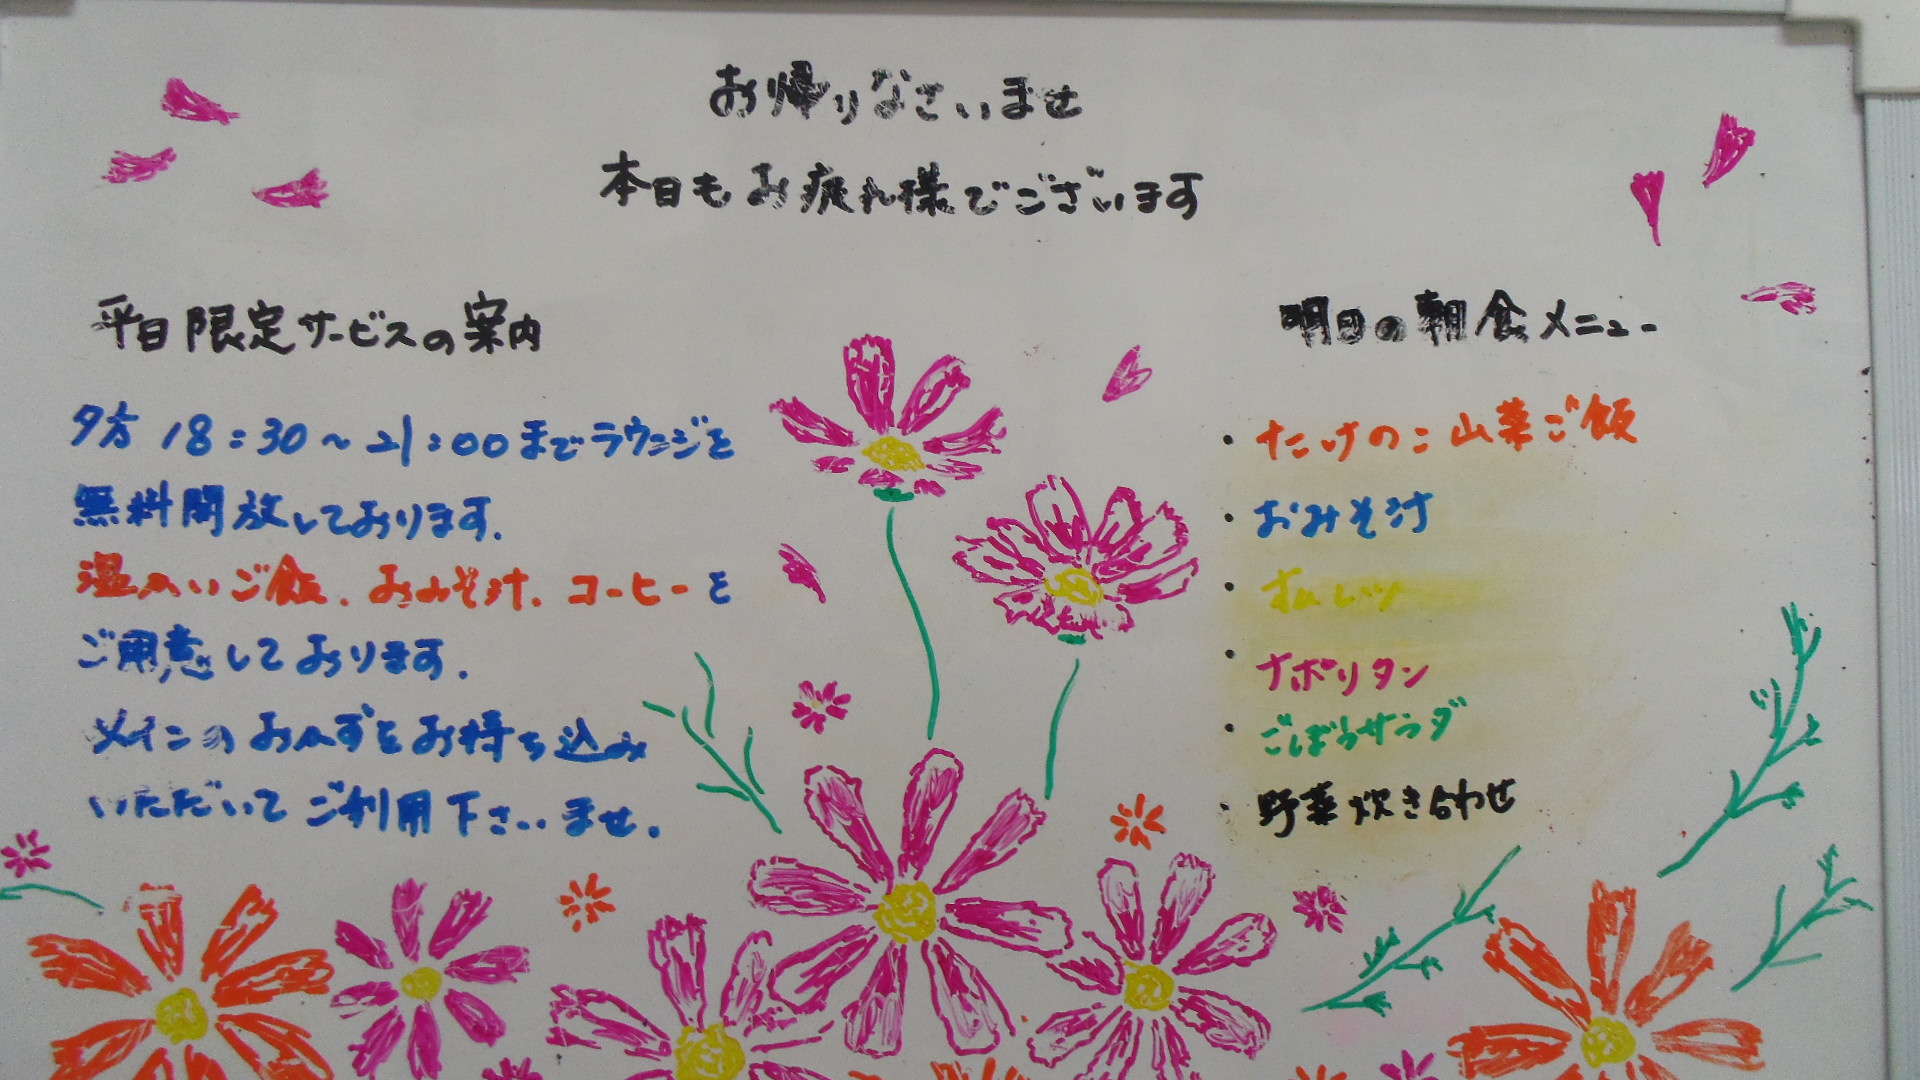 お帰りなさいませ
本日もお疲れ様でございます
平日限定サービスの案内
夕方 18:30～21:00までラウンジを
無料開放しております.
温かいご飯、おみそ汁、コーヒーを
ご用意しております.
メインのおかずをお持ち込み
いただいてご利用下さいませ.
明日の朝食メニュー
・たけのこ山菜ご飯
・おみそ汁
・オムレツ
・ナポリタン
・ごぼうサラダ
・野菜炊き合わせ